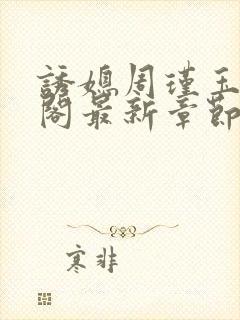 誘媳周瑾玉
閣最新章節
寒非